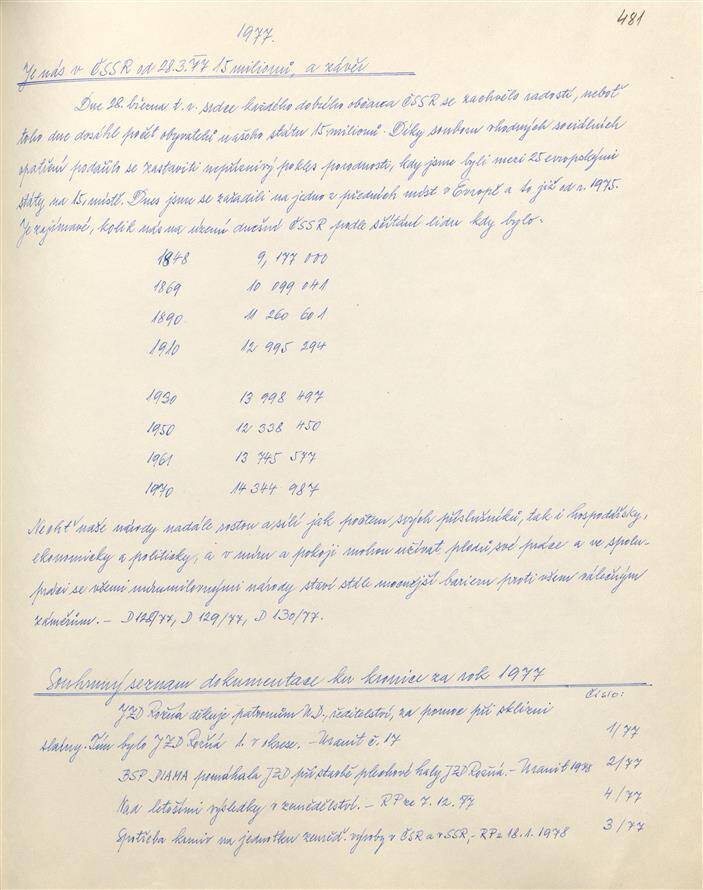 481
1977.
Je nás v ČSSR od 28.3.77 15 milionů, a závěr
Dne 28. března t. r. srdce každého dobrého občana ČSSR se zachvělo radostí, neboť
toho dne dosáhl počet obyvatelů našeho státu 15 milionů. Díky souboru vhodných sociálních
opatření podařilo se zastaviti nepříznivý pokles porodnosti, kdy jsme byli mezi 25 evropskými
státy na 15. místě. Dnes jsme se zařadili na jedno z předních míst v Evropě a to již od r. 1975.
Je zajímavé, kolik nás na území dnešní ČSSR podle sčítání lidu kdy bylo.
1848 9, 177 000
1869 10 099 041
1890 11 260 601
1910 12 995 294
1930 13 998 497
1950 12 338 450
1961 13 745 577
1970 14 344 987
Nechť naše národy nadále rostou a sílí jak počtem svých příslušníků, tak i hospodářsky,
ekonomicky a politicky, a v míru a pokoji mohou užívat plodů své práce a ve spolu-
práci se všemi mírumilovnými národy staví stále mocnější barieru proti všem válečným
záměrům. – D 128/77, D 129/77, D 130/77.
Souhrnný seznam dokumentace ku kronice za rok 1977
Číslo:
JZD Rožná děkuje patronům U.D., ředitelství, za pomoc při sklizni
slámy. Tím bylo JZD Rožná 1. v okrese. – Uranit č. 17 1/77
BSP DIAMA pomáhala JZD při stavbě plechové haly JZD Rožná. – Uranit 1978 2/77
Nad letošními výsledky v zemědělství. – RP ze 7. 12. 77 4/77
Spotřeba krmiv na jednotku zeměď. výroby v ČSR a v SSR, – RP z 18. 1. 1978 3/77